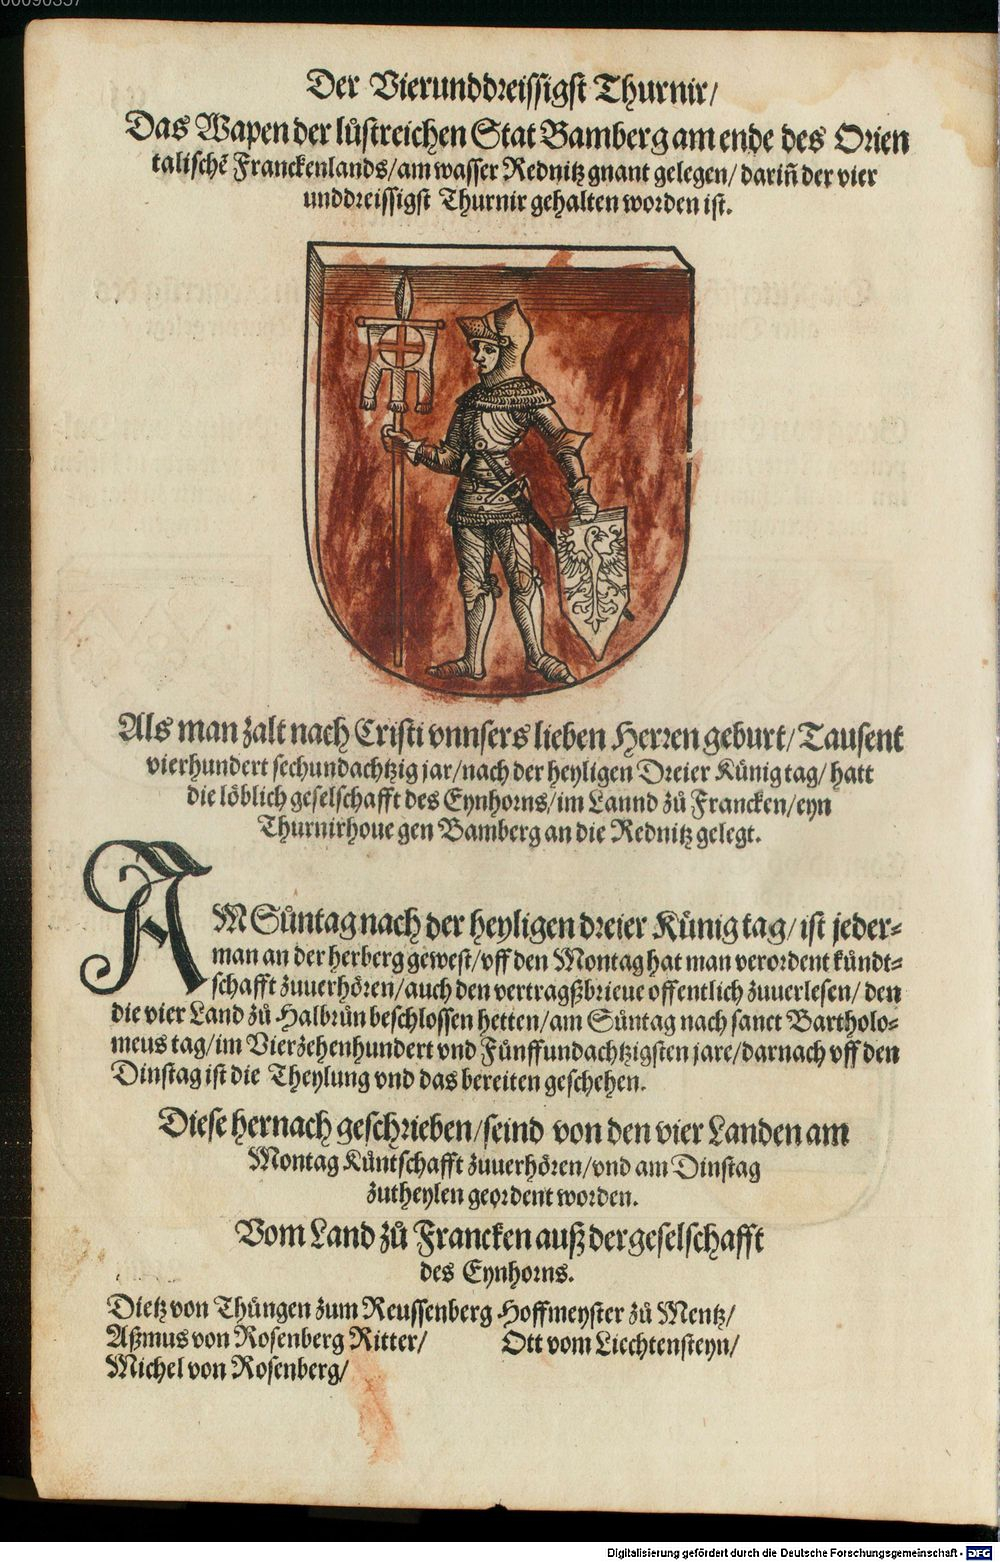 Der Vierunddreissigst Thurnir/
Das Wapen der lůstreichen Stat Bamberg am ende des Orien
talischē Franckenlands/am wasser Rednitz gnant gelegen/ dariñ der vier
unddreissigst Thurnir gehalten worden ist.
Als man zalt nach Cristi vnnsers lieben Herren geburt/ Tausent
vierhundert sechundachtzig jar/nach der heyligen Dreier Künig tag/ hatt
die löblich geselschafft des Eynhorns/im Lannd zů Francken/eyn
Thurnirhoue gen Bamberg an die Rednitz gelegt.
AM Sůntag nach der heyligen dreier Künig tag/ ist jeder-
man an der herberg gewest/vff den Montag hat man verordent kündt-
schafft zuuerhören/auch den vertragßbrieue offentlich zuuerlesen/ den
die vier Land zů Halbrůn beschlossen hetten/am Sůntag nach sanct Bartholo-
meus tag/im Vierzehenhundert vnd Fünffundachtzigsten jare/darnach vff den
Dinstag ist die Theylung vnd das bereiten geschehen.
Diese hernach geschrieben/seind von den vier Landen am
Montag Küntschafft zuuerhören/vnd am Dinstag
zutheylen geordent worden.
Vom Land zů Francken auß der geselschafft
des Eynhorns.
Dietz von Thüngen zum Reussenberg Hoffmeyster zů Mentz/
Aßmus von Rosenberg Ritter/ Ott vom Liechtensteyn/
Michel von Rosenberg/
Digitalisierung gefördert durch die Deutsche Forschungsgemeinschaft - DFG